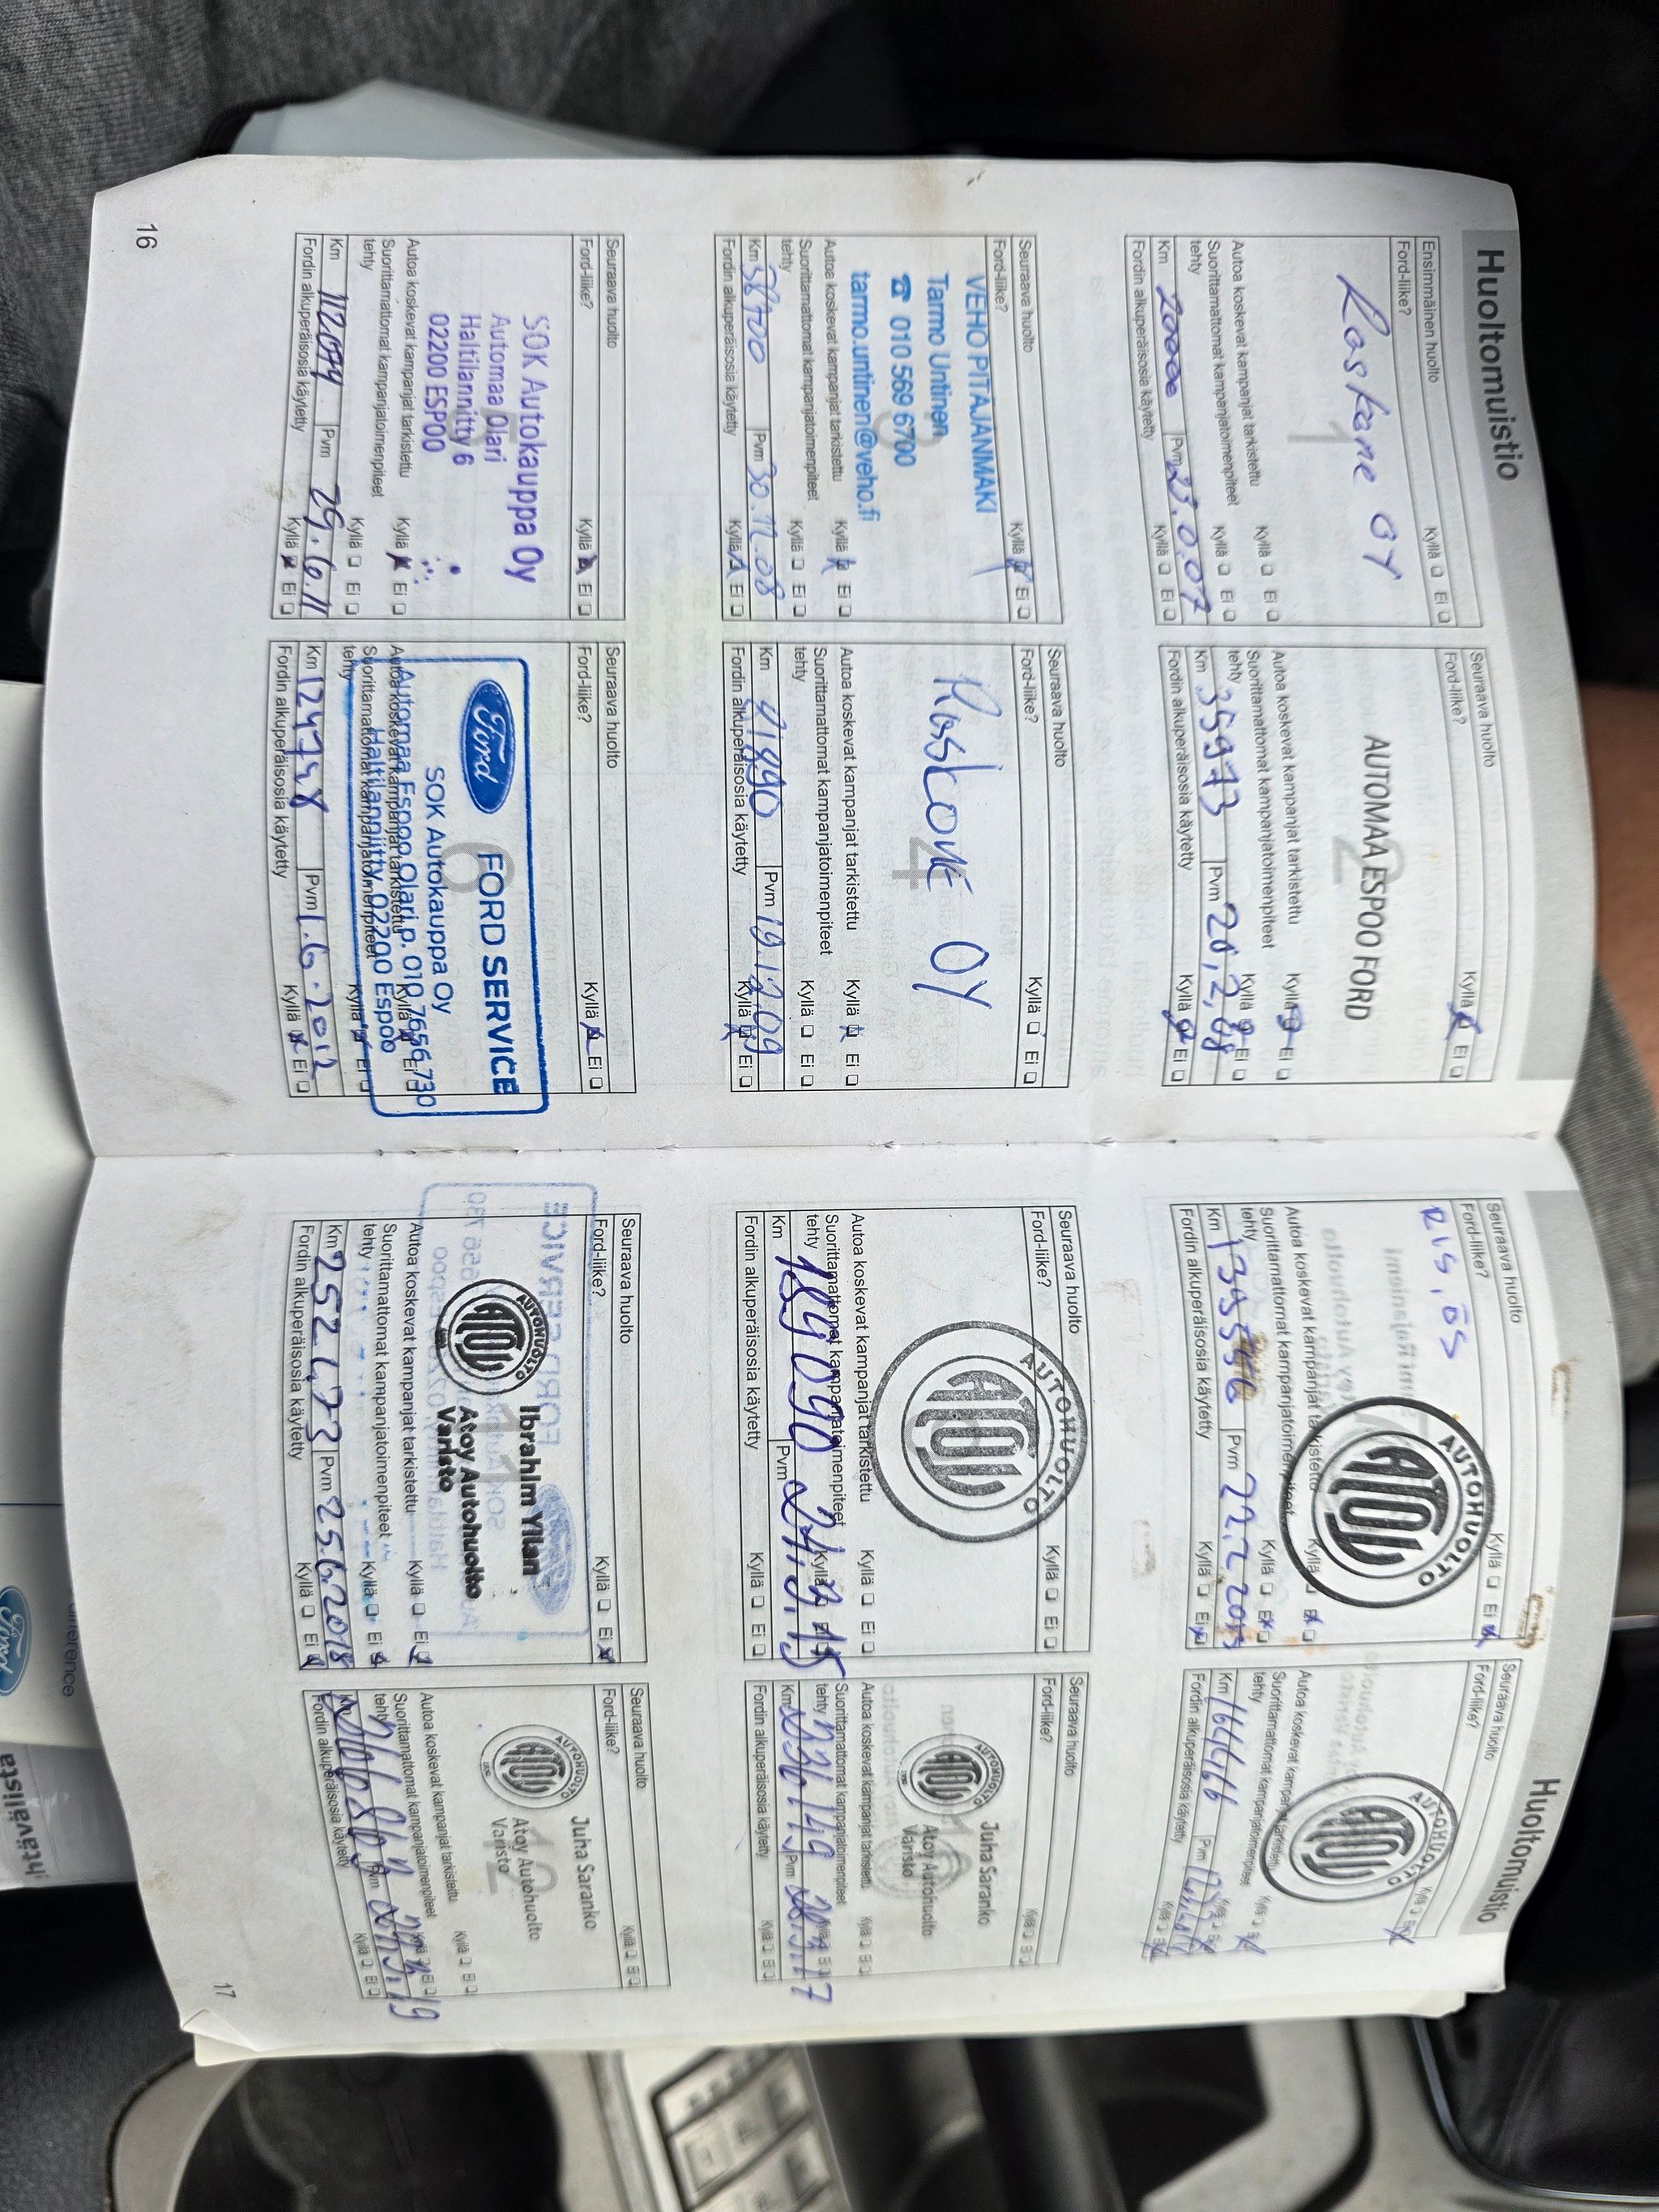 Huoltomuistio
Ensimmäinen huolto
Ford-liike? Kyllä ❑ Ei ❑
Raskone OY
1
Autoa koskevat kampanjat tarkistettu Kyllä ❑ Ei ❑
Suorittamattomat kampanjatoimenpiteet
tehty Kyllä ❑ Ei ❑
Km 20000 Pvm
Fordin alkuperäisosia käytetty Kyllä ❑ Ei ❑
Seuraava huolto
Ford-liike? Kyllä Ei ❑
AUTOMAA ESPOO FORD
2
Autoa koskevat kampanjat tarkistettu Kyllä Ei ❑
Suorittamattomat kampanjatoimenpiteet
tehty Kyllä Ei ❑
Km 35973 Pvm 20,2,08
Fordin alkuperäisosia käytetty Kyllä Ei ❑
Seuraava huolto
Ford-liike? Kyllä Ei ❑
VEHO PITÄJÄNMÄKI
Tarmo Untinen
☎ 010 569 6700
tarmo.untinen@veho.fi
Autoa koskevat kampanjat tarkistettu Kyllä Ei ❑
Suorittamattomat kampanjatoimenpiteet
tehty Kyllä ❑ Ei ❑
Km 58700 Pvm 30.11.08
Fordin alkuperäisosia käytetty Kyllä Ei ❑
Seuraava huolto
Ford-liike? Kyllä ❑ Ei ❑
Raskone OY
4
Autoa koskevat kampanjat tarkistettu Kyllä Ei ❑
Suorittamattomat kampanjatoimenpiteet
tehty Kyllä ❑ Ei ❑
Km 41890 Pvm 19.12.09
Fordin alkuperäisosia käytetty Kyllä Ei ❑
Seuraava huolto
Ford-liike? Kyllä Ei ❑
SOK Autokauppa Oy
Automaa Olari
Haltilannitty 6
02200 ESPOO
5
Autoa koskevat kampanjat tarkistettu Kyllä Ei ❑
Suorittamattomat kampanjatoimenpiteet
tehty Kyllä ❑ Ei ❑
Km 112079 Pvm 29.6.11
Fordin alkuperäisosia käytetty Kyllä Ei ❑
Seuraava huolto
Ford-liike? Kyllä Ei ❑
Ford FORD SERVICE
6
SOK Autokauppa Oy
Automaa Espoo Olari p. 010 7656 730
Haltilannitty, 02200 Espoo
Autoa koskevat kampanjat tarkistettu Kyllä Ei ❑
Suorittamattomat kampanjatoimenpiteet
tehty Kyllä Ei ❑
Km 124748 Pvm 1.6.2012
Fordin alkuperäisosia käytetty Kyllä Ei ❑
16
Huoltomuistio
Seuraava huolto
Ford-liike? Kyllä ❑ Ei
AUTOHUOLTO
ATOY
Autoa koskevat kampanjat tarkistettu Kyllä Ei
Suorittamattomat kampanjatoimenpiteet
tehty Kyllä ❑ Ei
Km Pvm 22.2.2013
Fordin alkuperäisosia käytetty Kyllä ❑ Ei
Seuraava huolto
Ford-liike? Kyllä ❑ Ei
AUTOHUOLTO
ATOY
Autoa koskevat kampanjat tarkistettu Kyllä ❑ Ei
Suorittamattomat kampanjatoimenpiteet
tehty Kyllä ❑ Ei
Km 164166 Pvm
Fordin alkuperäisosia käytetty Kyllä ❑ Ei
Seuraava huolto
Ford-liike? Kyllä ❑ Ei ❑
AUTOHUOLTO
ATOY
Autoa koskevat kampanjat tarkistettu Kyllä ❑ Ei ❑
Suorittamattomat kampanjatoimenpiteet
tehty Kyllä Ei
Km 189090 Pvm
Fordin alkuperäisosia käytetty Kyllä ❑ Ei ❑
Seuraava huolto
Ford-liike? Kyllä ❑ Ei ❑
AUTOHUOLTO
ATOY
Juha Saranko
Atoy Autohuolto
Varisto
Autoa koskevat kampanjat tarkistettu Kyllä ❑ Ei ❑
Suorittamattomat kampanjatoimenpiteet
tehty Kyllä ❑ Ei ❑
Km 236149 Pvm
Fordin alkuperäisosia käytetty Kyllä ❑ Ei ❑
Seuraava huolto
Ford-liike? Kyllä ❑ Ei
AUTOHUOLTO
ATOY
Ibrahim Yilari
Atoy Autohuolto
Varisto
11
Autoa koskevat kampanjat tarkistettu Kyllä ❑ Ei
Suorittamattomat kampanjatoimenpiteet
tehty Kyllä ❑ Ei
Km 252473 Pvm 25.6.2018
Fordin alkuperäisosia käytetty Kyllä ❑ Ei
Seuraava huolto
Ford-liike? Kyllä ❑ Ei ❑
AUTOHUOLTO
ATOY
Juha Saranko
Atoy Autohuolto
Varisto
12
Autoa koskevat kampanjat tarkistettu Kyllä ❑ Ei ❑
Suorittamattomat kampanjatoimenpiteet
tehty Kyllä Ei ❑
Km Pvm
Fordin alkuperäisosia käytetty Kyllä ❑ Ei ❑
17
Ford